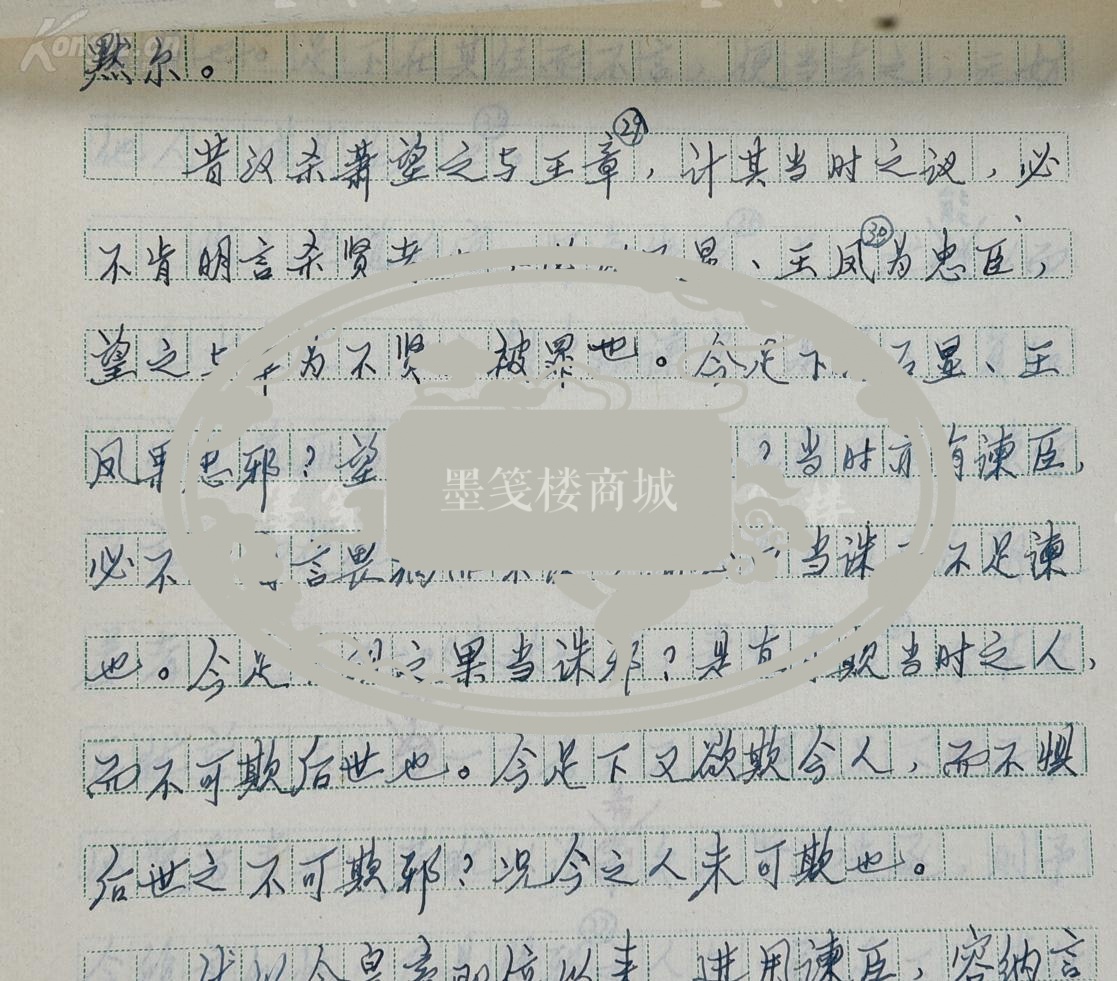 默尔。
昔汉杀萧望之与王章㉙，计其当时之议，必
不肯明言杀贤者显、王凤㉚为忠臣，
望之与章为不贤被罪也。今足下石显、王
凤果忠邪？望？当时亦有谏臣，
必不言畏当诛而不足谏
也。今足之果当诛邪？是直欺当时之人，
而不可欺后世也。今足下又欲欺今人，而不惧
后世之不可欺邪？况今之人未可欺也。
伏以今皇帝即位以来，进用谏臣，容纳言
墨笺楼商城